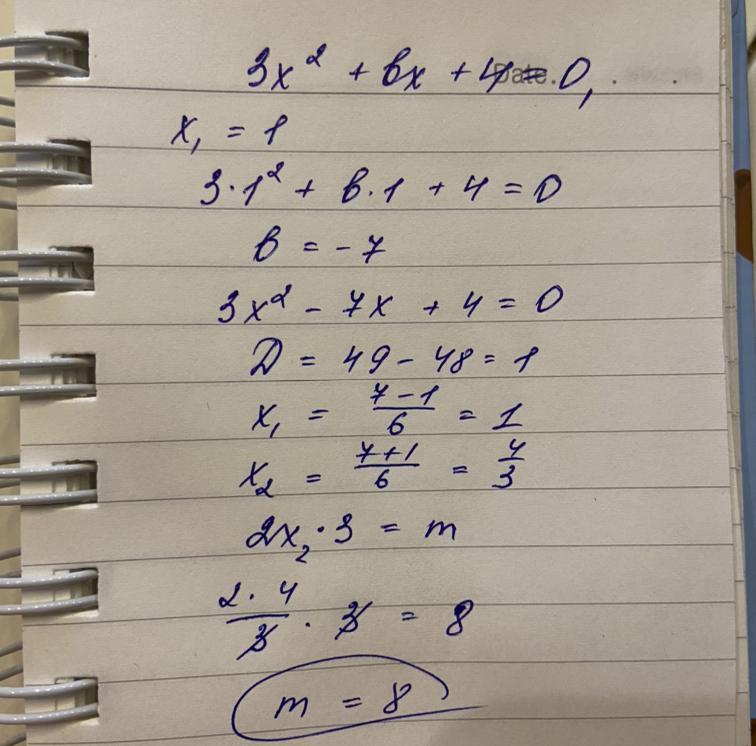 3x² + bx + 4 = 0,
Date.
x₁ = 1
3·1² + b·1 + 4 = 0
b = -7
3x² - 7x + 4 = 0
D = 49 - 48 = 1
x₁ = (7-1)/6 = 1
x₂ = (7+1)/6 = 4/3
2x₂·3 = m
(2·4)/3 · 3 = 8
m = 8